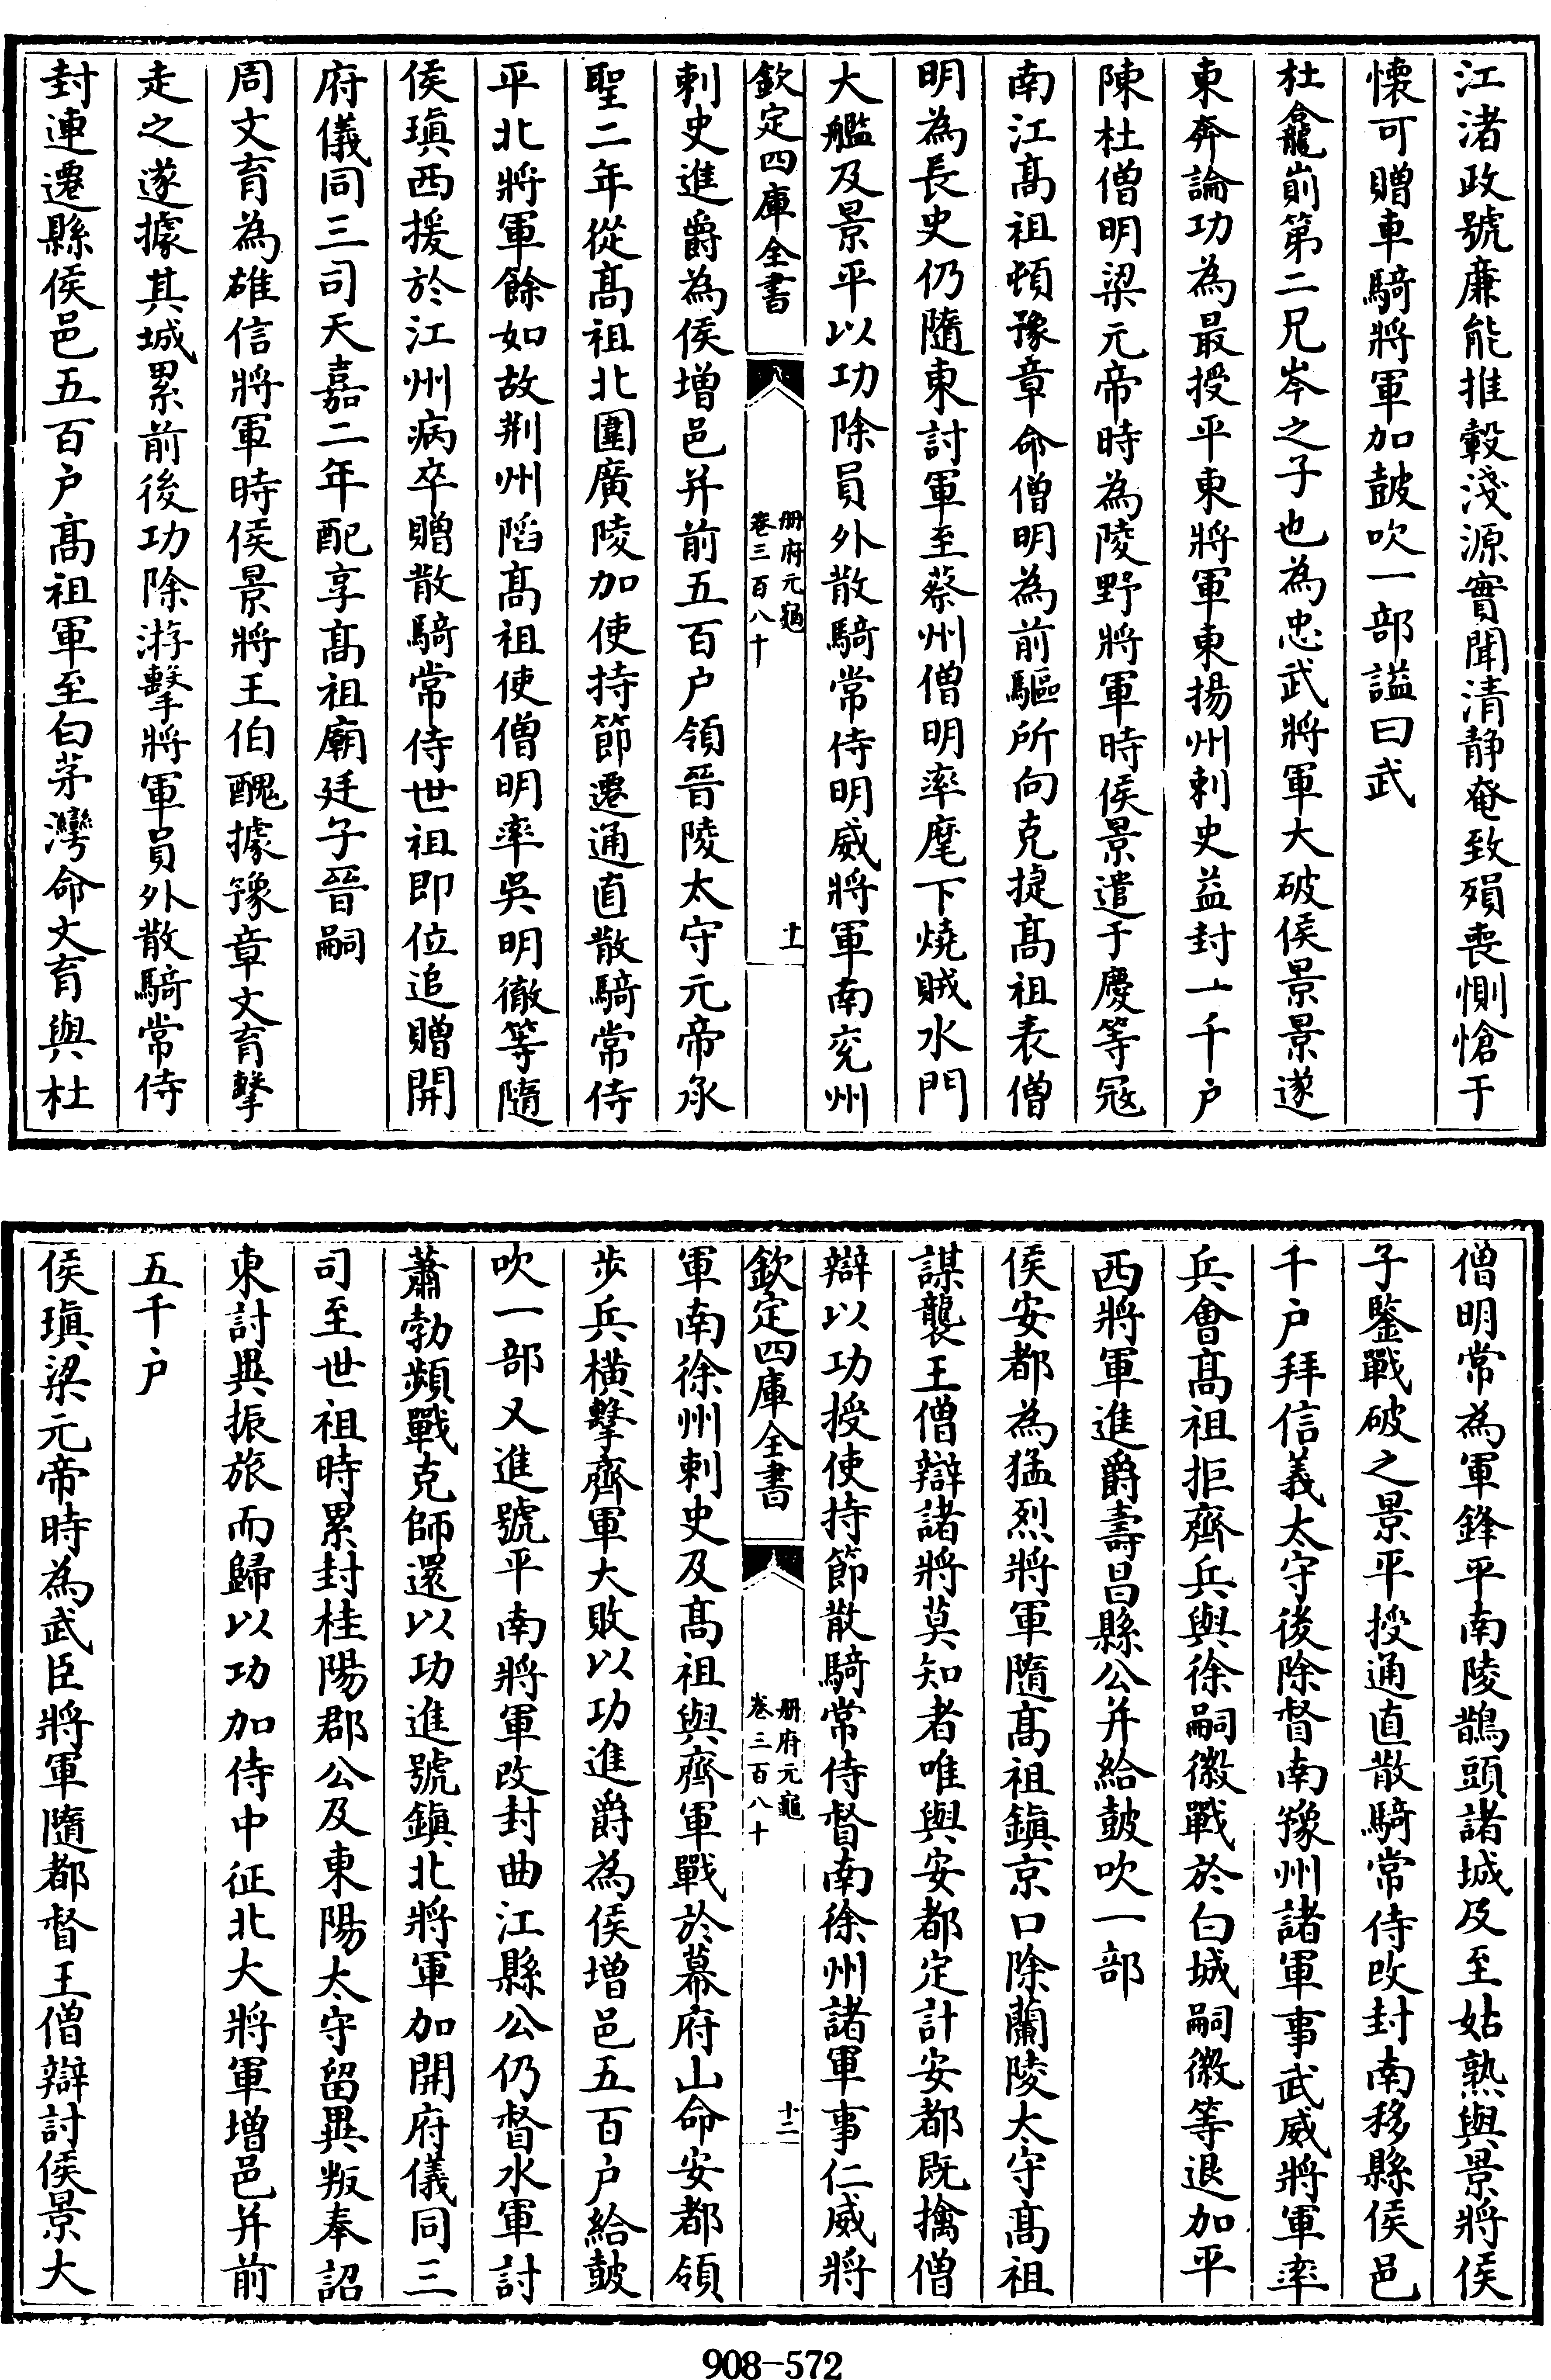 江渚政號廉能推轂淺源實聞清静奄致殞喪惻愴于
懐可贈車騎將軍加鼓吹一部謚曰武
杜龕崱第二兄岑之子也為忠武將軍大破侯景景遂
東奔論功為最授平東將軍東揚州刺史益封一千户
陳杜僧明梁元帝時為陵野將軍時侯景遣于慶等冦
南江髙祖頓豫章命僧明為前驅所向克捷髙祖表僧
明為長史仍隨東討軍至蔡州僧明率麾下燒賊水門
大艦及景平以功除員外散騎常侍明威將軍南兖州
欽定四庫全書
册府元龜
卷三百八十
十一
刺史進爵為侯増邑并前五百户領晉陵太守元帝承
聖二年從髙祖北圍廣陵加使持節遷通直散騎常侍
平北將軍餘如故荆州䧟髙祖使僧明率吳明徹等隨
侯瑱西援於江州病卒贈散騎常侍世祖即位追贈開
府儀同三司天嘉二年配享髙祖廟廷子晉嗣
周文育為雄信將軍時侯景將王伯醜據豫章文育擊
走之遂據其城累前後功除游擊將軍員外散騎常侍
封連遷縣侯邑五百户髙祖軍至白茅灣命文育與杜
僧明常為軍鋒平南陵鵲頭諸城及至姑熟與景將侯
子鑒戰破之景平授通直散騎常侍改封南移縣侯邑
千户拜信義太守後除督南豫州諸軍事武威將軍率
兵會髙祖拒齊兵與徐嗣徽戰於白城嗣徽等退加平
西將軍進爵壽昌縣公并給鼓吹一部
侯安都為猛烈將軍隨髙祖鎮京口除蘭陵太守髙祖
謀襲王僧辯諸將莫知者唯與安都定計安都既擒僧
辯以功授使持節散騎常侍督南徐州諸軍事仁威將
欽定四庫全書
册府元龜
卷三百八十
十二
軍南徐州刺史及髙祖與齊軍戰於幕府山命安都領
步兵横擊齊軍大敗以功進爵為侯増邑五百户給鼓
吹一部又進號平南將軍改封曲江縣公仍督水軍討
蕭勃頻戰克師還以功進號鎮北將軍加開府儀同三
司至世祖時累封桂陽郡公及東陽太守留異叛奉詔
東討異振旅而歸以功加侍中征北大將軍増邑并前
五千户
侯瑱梁元帝時為武臣將軍隨都督王僧辯討侯景大
908-572